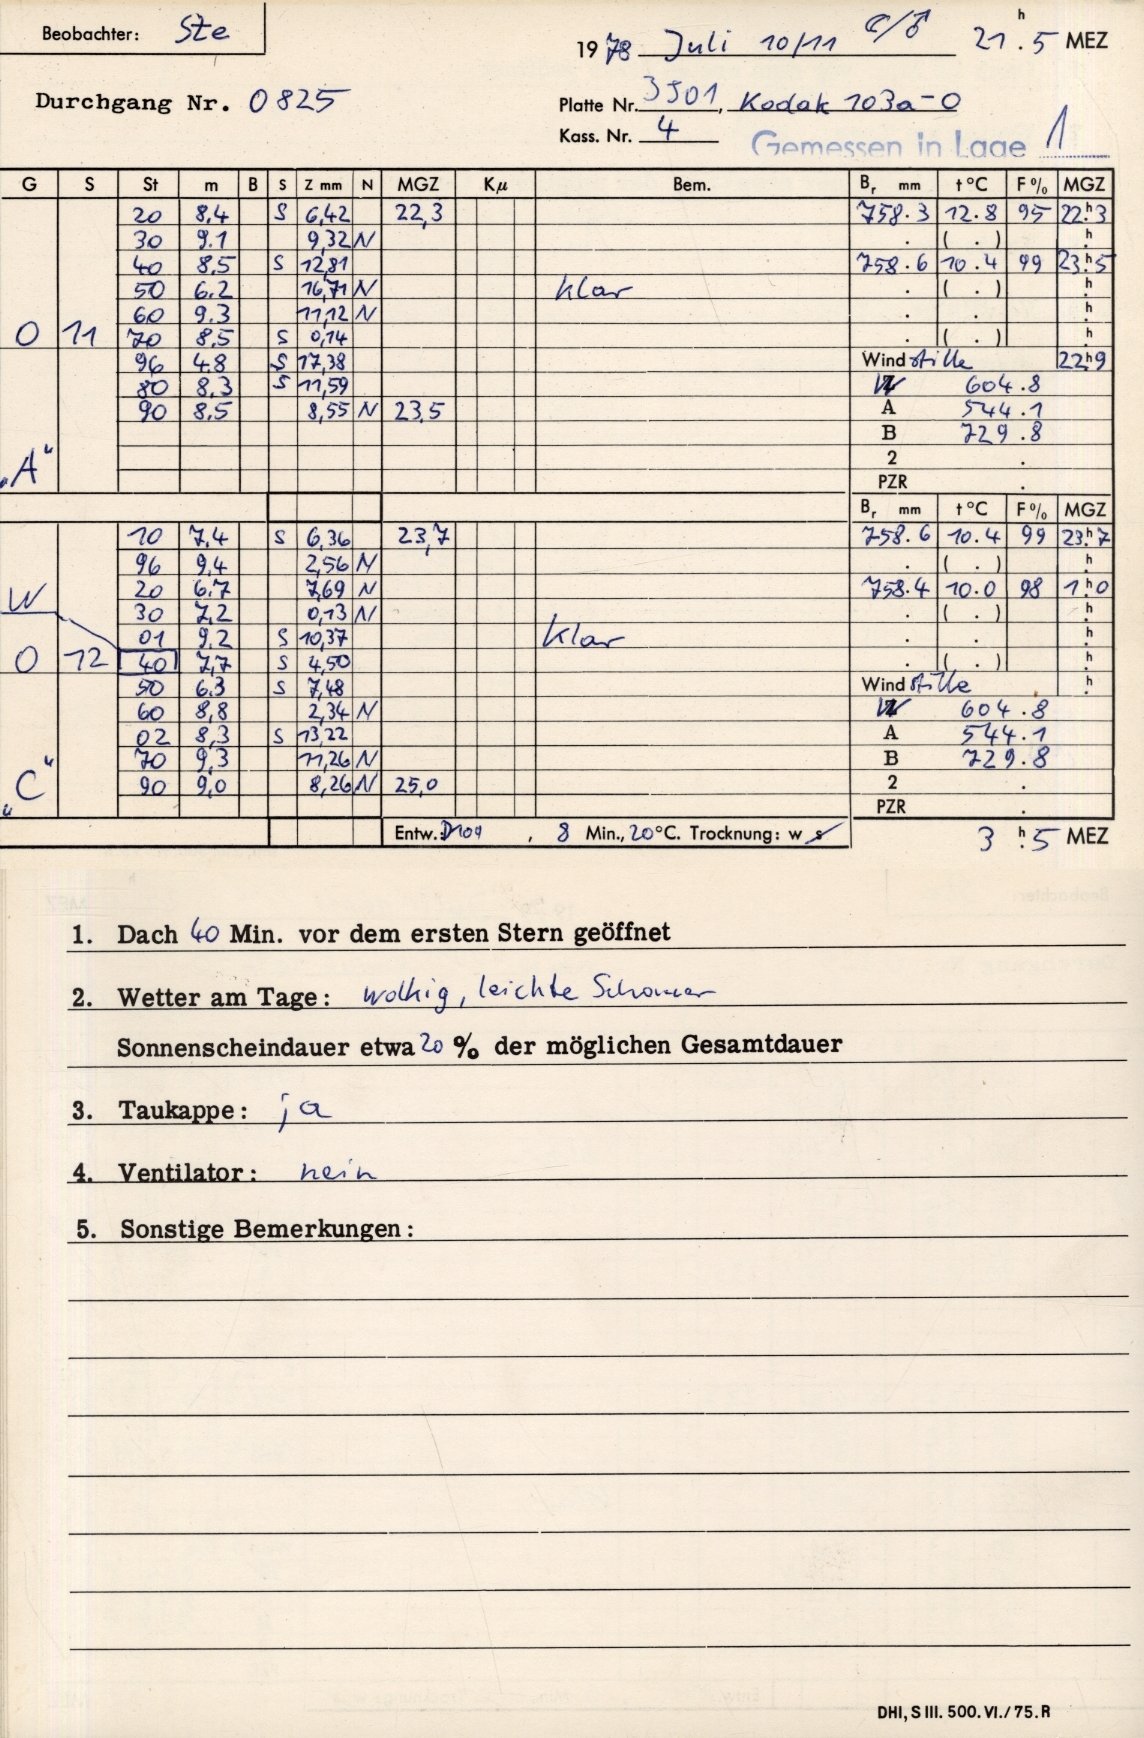 Beobachter: Ste
1978 Juli 10/11 ☾/♂ 21h.5 MEZ
Durchgang Nr. 0825
Platte Nr. 3501, Kodak 103a-O
Kass. Nr. 4
Gemessen in Lage 1
G S St m B S Z mm N MGZ Kµ Bem. Br mm t °C F % MGZ
20 8,4 S 6,42 22,3 758.3 12.8 95 22h.3
30 9.1 9,32 N . ( . ) h.
40 8,5 S 12,81 758.6 10.4 99 23h.5
50 6.2 16,71 N klar . ( . ) h.
60 9.3 11,12 N . . h.
O 11 70 8,5 S 0,14 . ( . ) h.
96 4.8 S 17,38 Wind stille 22h9
80 8.3 S 11,59 W 604.8
90 8.5 8,55 N 23,5 A 544.1
B 729.8
„A“ 2 .
PZR .
Br mm t °C F % MGZ
10 7,4 S 6,36 23,7 758.6 10.4 99 23h.7
96 9,4 2,56 N . ( . ) h
W 20 6.7 7,69 N 758.4 10.0 98 1h.0
30 7,2 0,13 N . ( . ) h.
01 9,2 S 10,37 klar . . h.
O 12 40 7,7 S 4,50 . ( . ) h.
50 6.3 S 7,48 Wind stille h.
60 8,8 2,34 N W 604.8
02 8,3 S 13,22 A 544.1
70 9,3 11,26 N B 729.8
„C“ 90 9,0 8,26 N 25,0 2 .
PZR .
Entw. D104, 8 Min., 20°C. Trocknung: w s 3 h.5 MEZ
1. Dach 40 Min. vor dem ersten Stern geöffnet
2. Wetter am Tage: wolkig, leichte Schauer
Sonnenscheindauer etwa 20 % der möglichen Gesamtdauer
3. Taukappe: ja
4. Ventilator: nein
5. Sonstige Bemerkungen:
DHI, S III. 500. VI./75. R